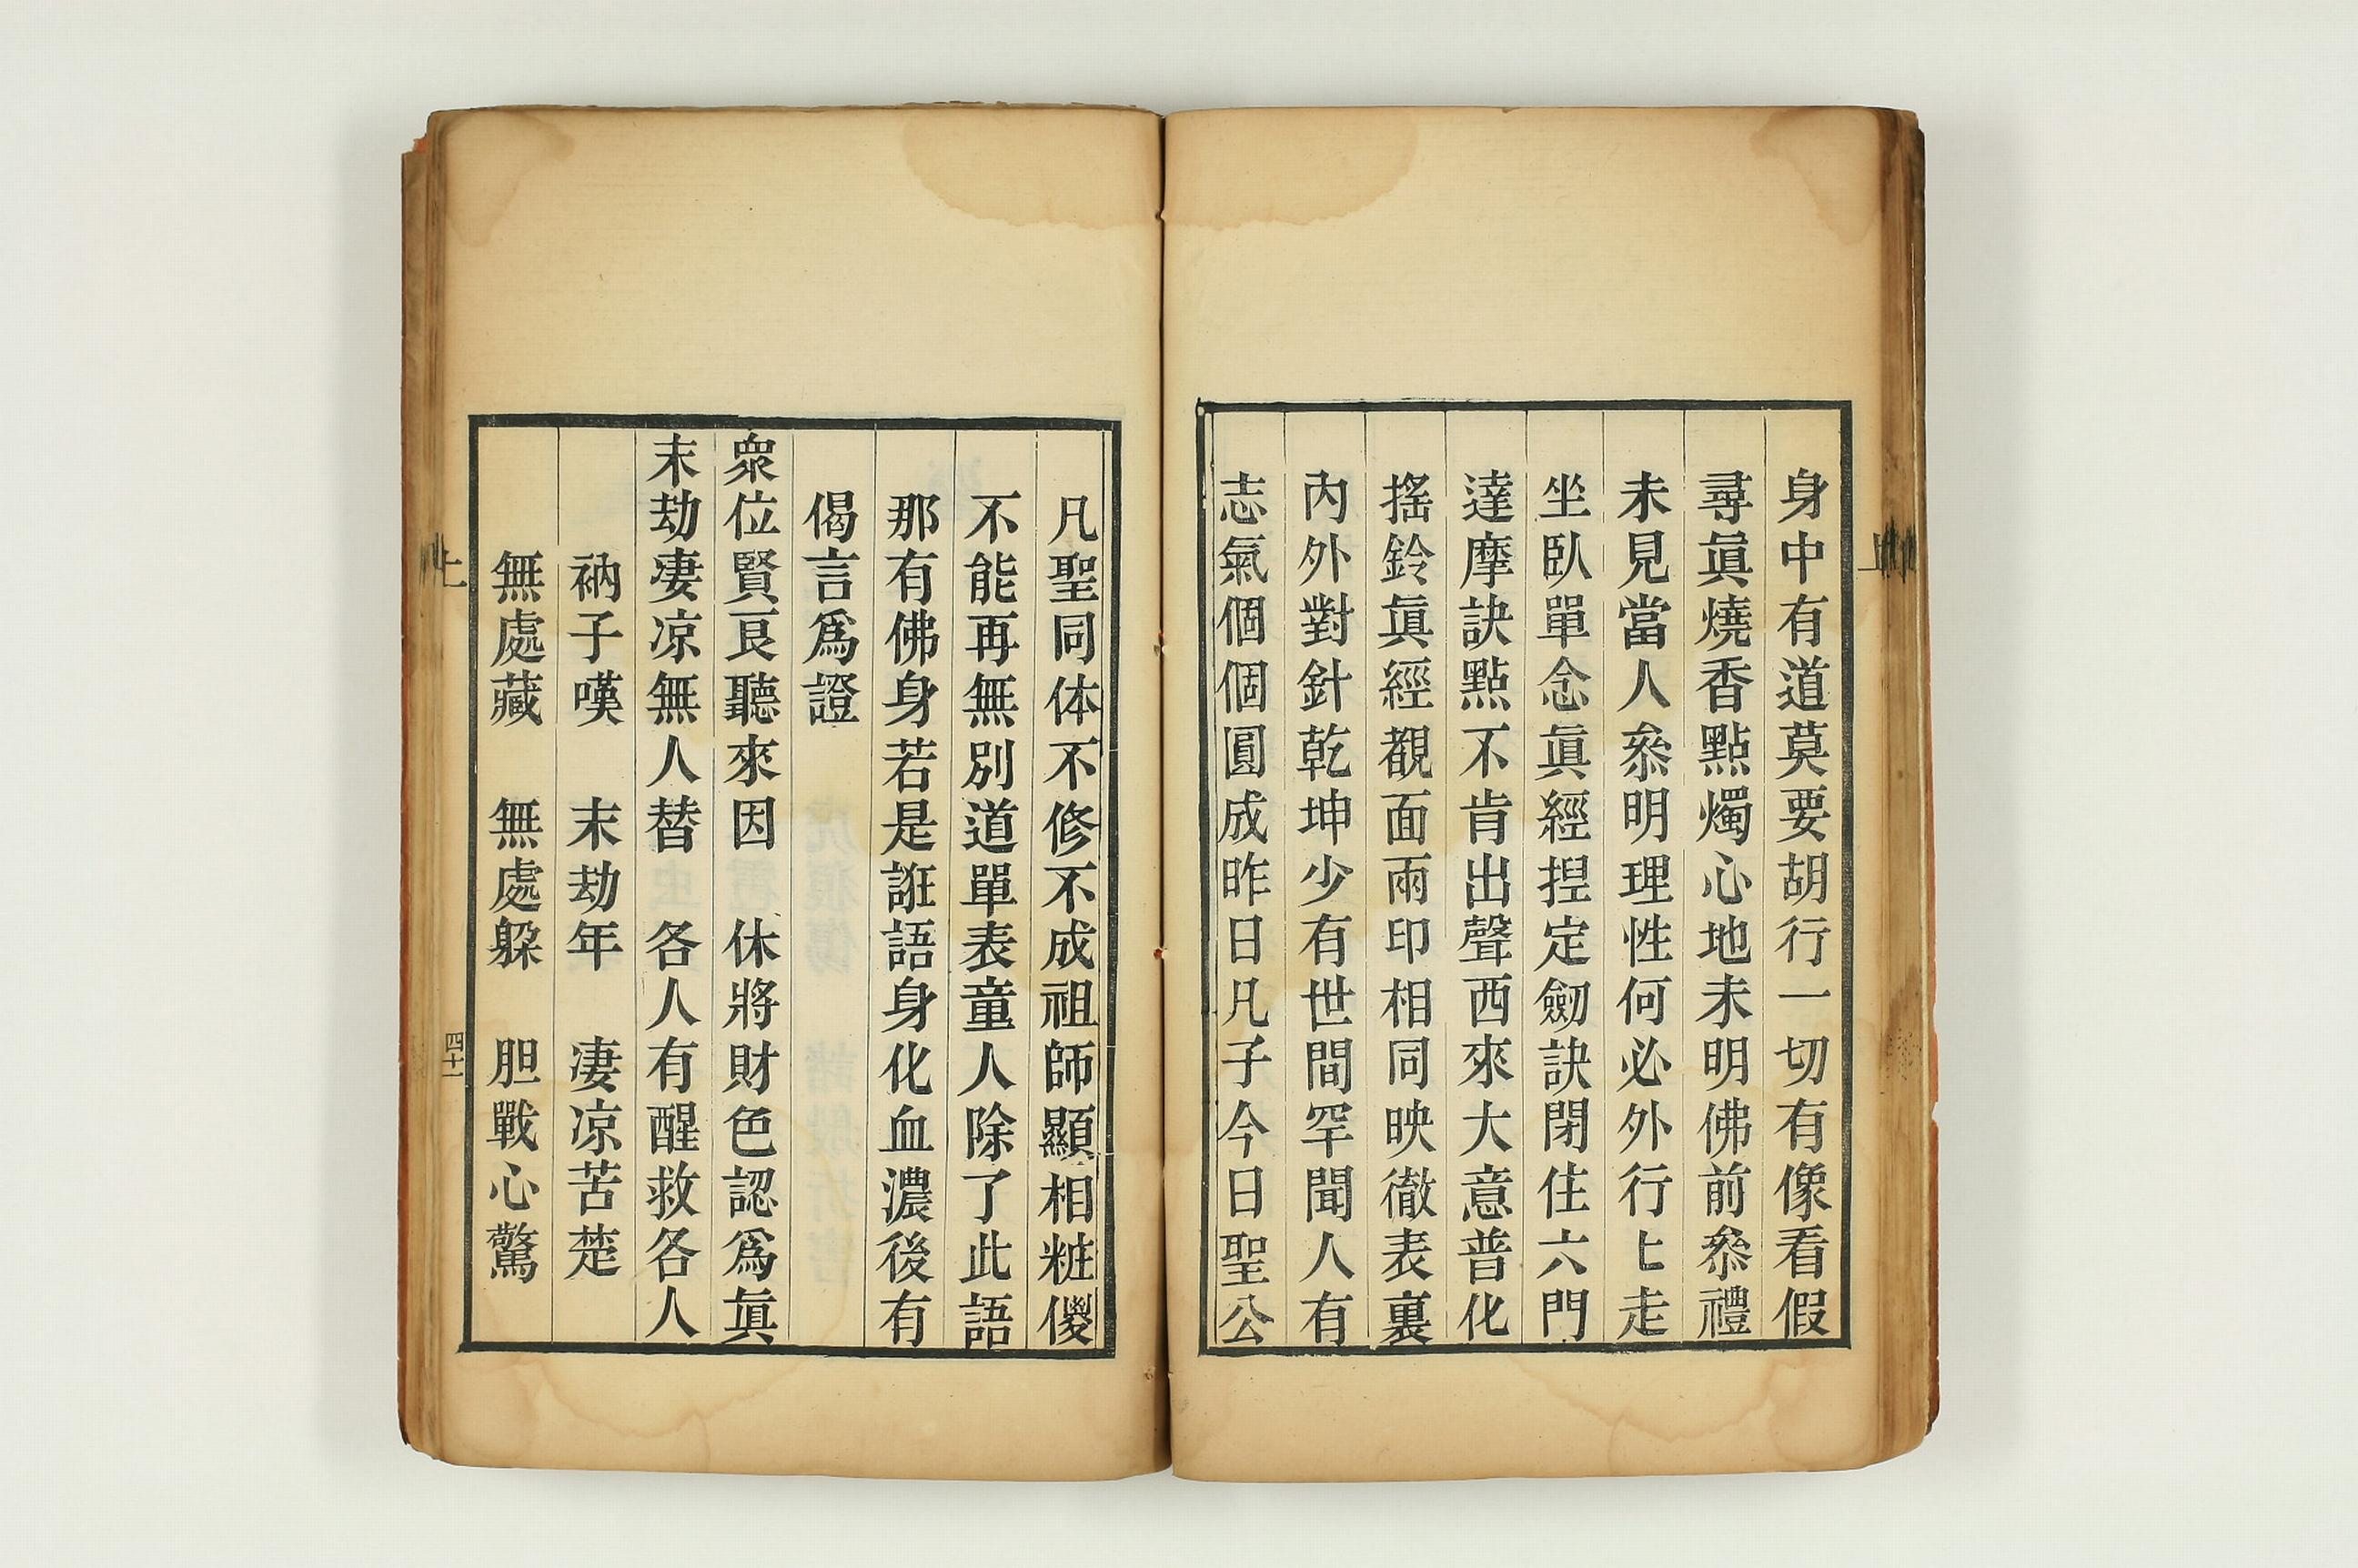 身中有道莫要胡行一切有像看假
尋眞燒香點燭心地未明佛前叅禮
未見當人叅明理性何必外行上走
坐臥單念眞經揑定劒訣閉住六門
達摩訣點不肯出聲西來大意普化
搖鈴眞經觀面兩印相同映徹表裏
內外對針乾坤少有世間罕聞人有
志氣個個圓成昨日凡子今日聖公
凡聖同体不修不成祖師顯相粧儍
不能再無別道單表童人除了此語
那有佛身若是誑語身化血濃後有
偈言爲證
衆位賢良聽來因　休將財色認爲眞
末劫凄凉無人替　各人有醒救各人
衲子嘆　末劫年　凄凉苦楚
無處藏　無處躱　胆戰心驚
上
四十一